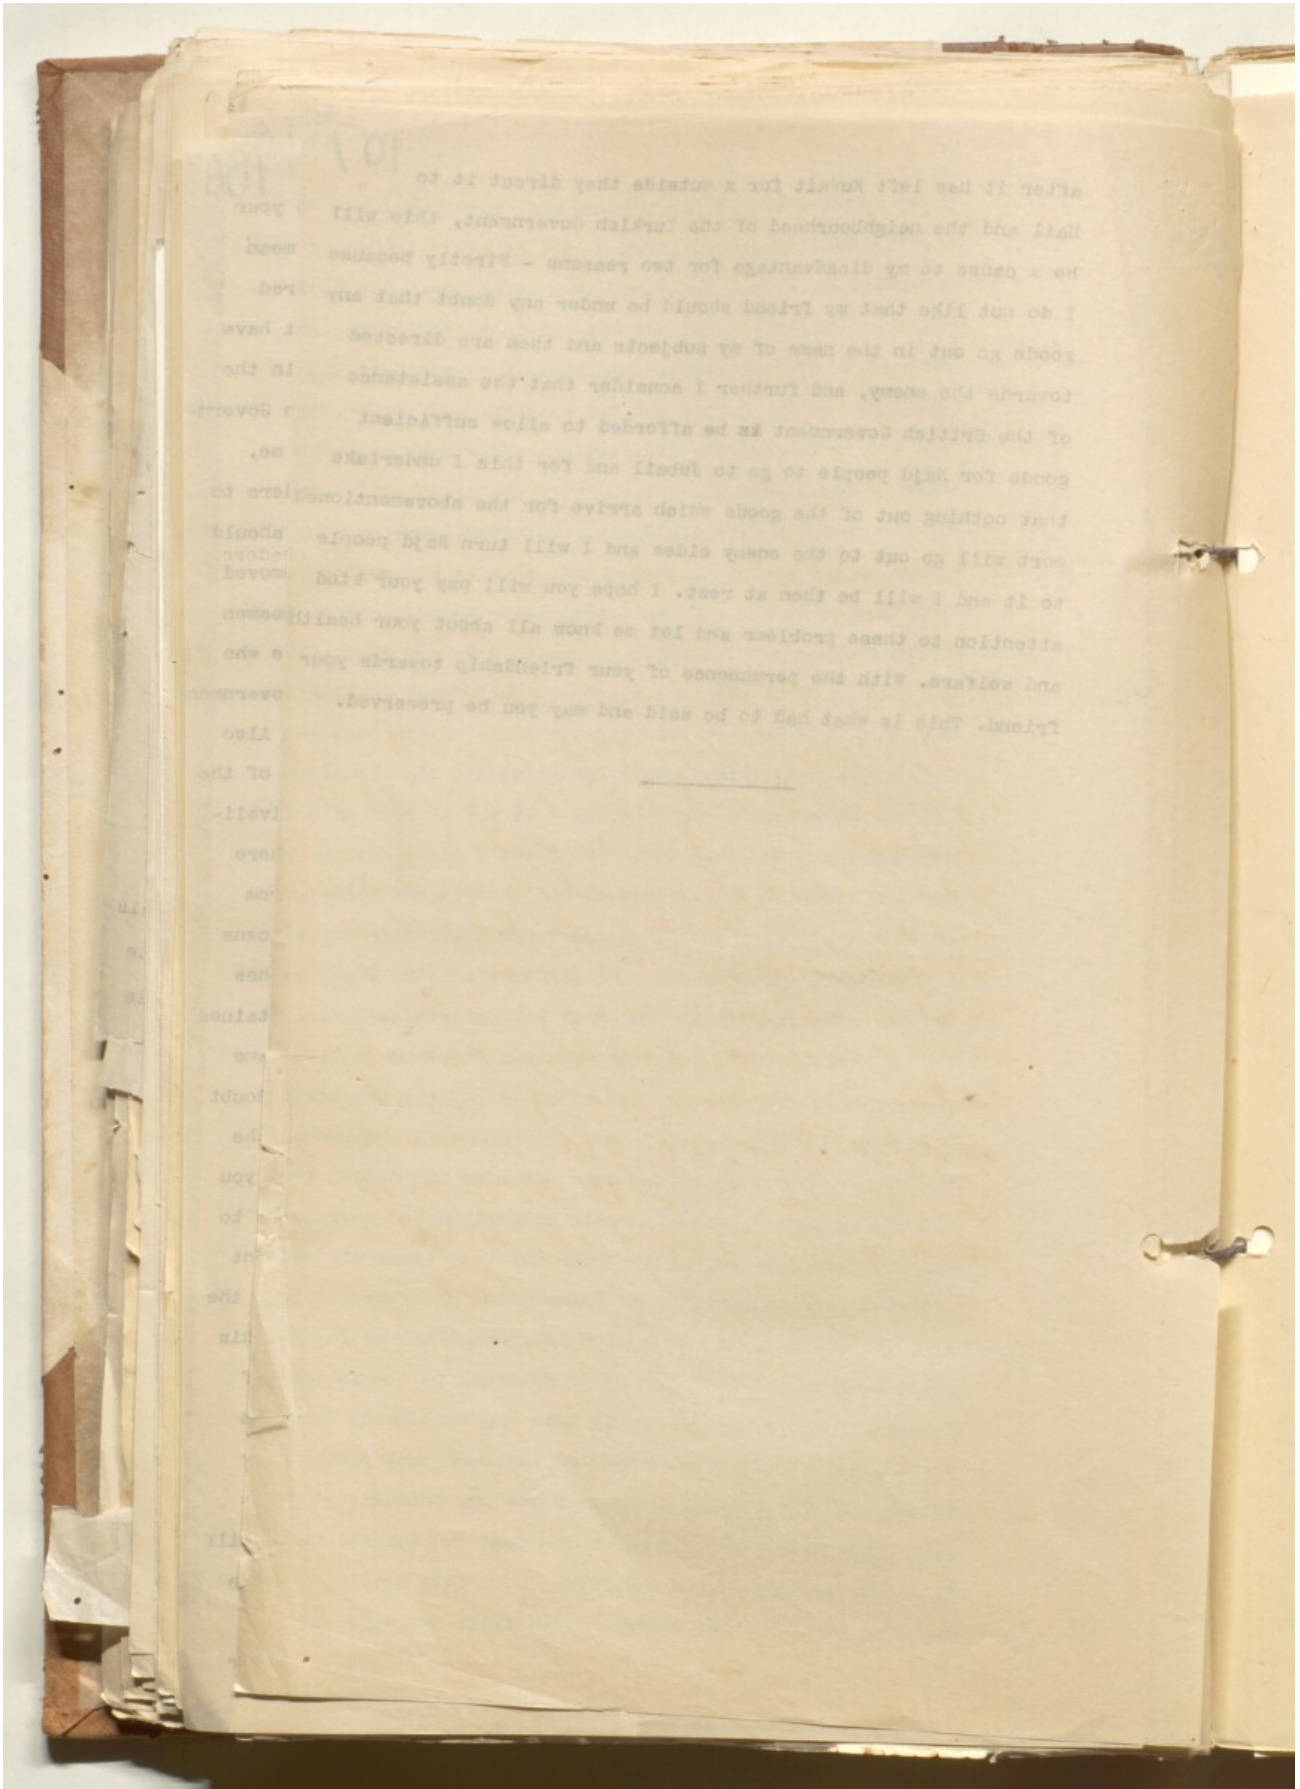 107
after it has left Kuwait for a outside they direct it to
Hail and the neighbourhood of the Turkish Government, this will
be a cause to my disadvantage for two reasons - Firstly because
I do not like that my friend should be under any doubt that any
goods go out in the name of my subjects and then are directed
towards the enemy, and further I consider that the assistance
of the British Government is be afforded to allow sufficient
goods for Najd people to go to Jubail and for this I undertake
that nothing out of the goods which arrive for the abovementioned
port will go out to the enemy sides and I will turn Najd people
to it and I will be then at rest. I hope you will pay your kind
attention to these problems and let me know all about your health
and welfare. With the permanence of your friendship towards your
friend. This is what had to be said and may you be preserved.
106
your
mead
red
t have
in the
Govern
me,
lers to
should
nders
moved
esmen
e who
overnmen
Also
of the
iveli-
here
rom
owns
has
tained
ame
doubt
the
you
to
nt
the
his
ill